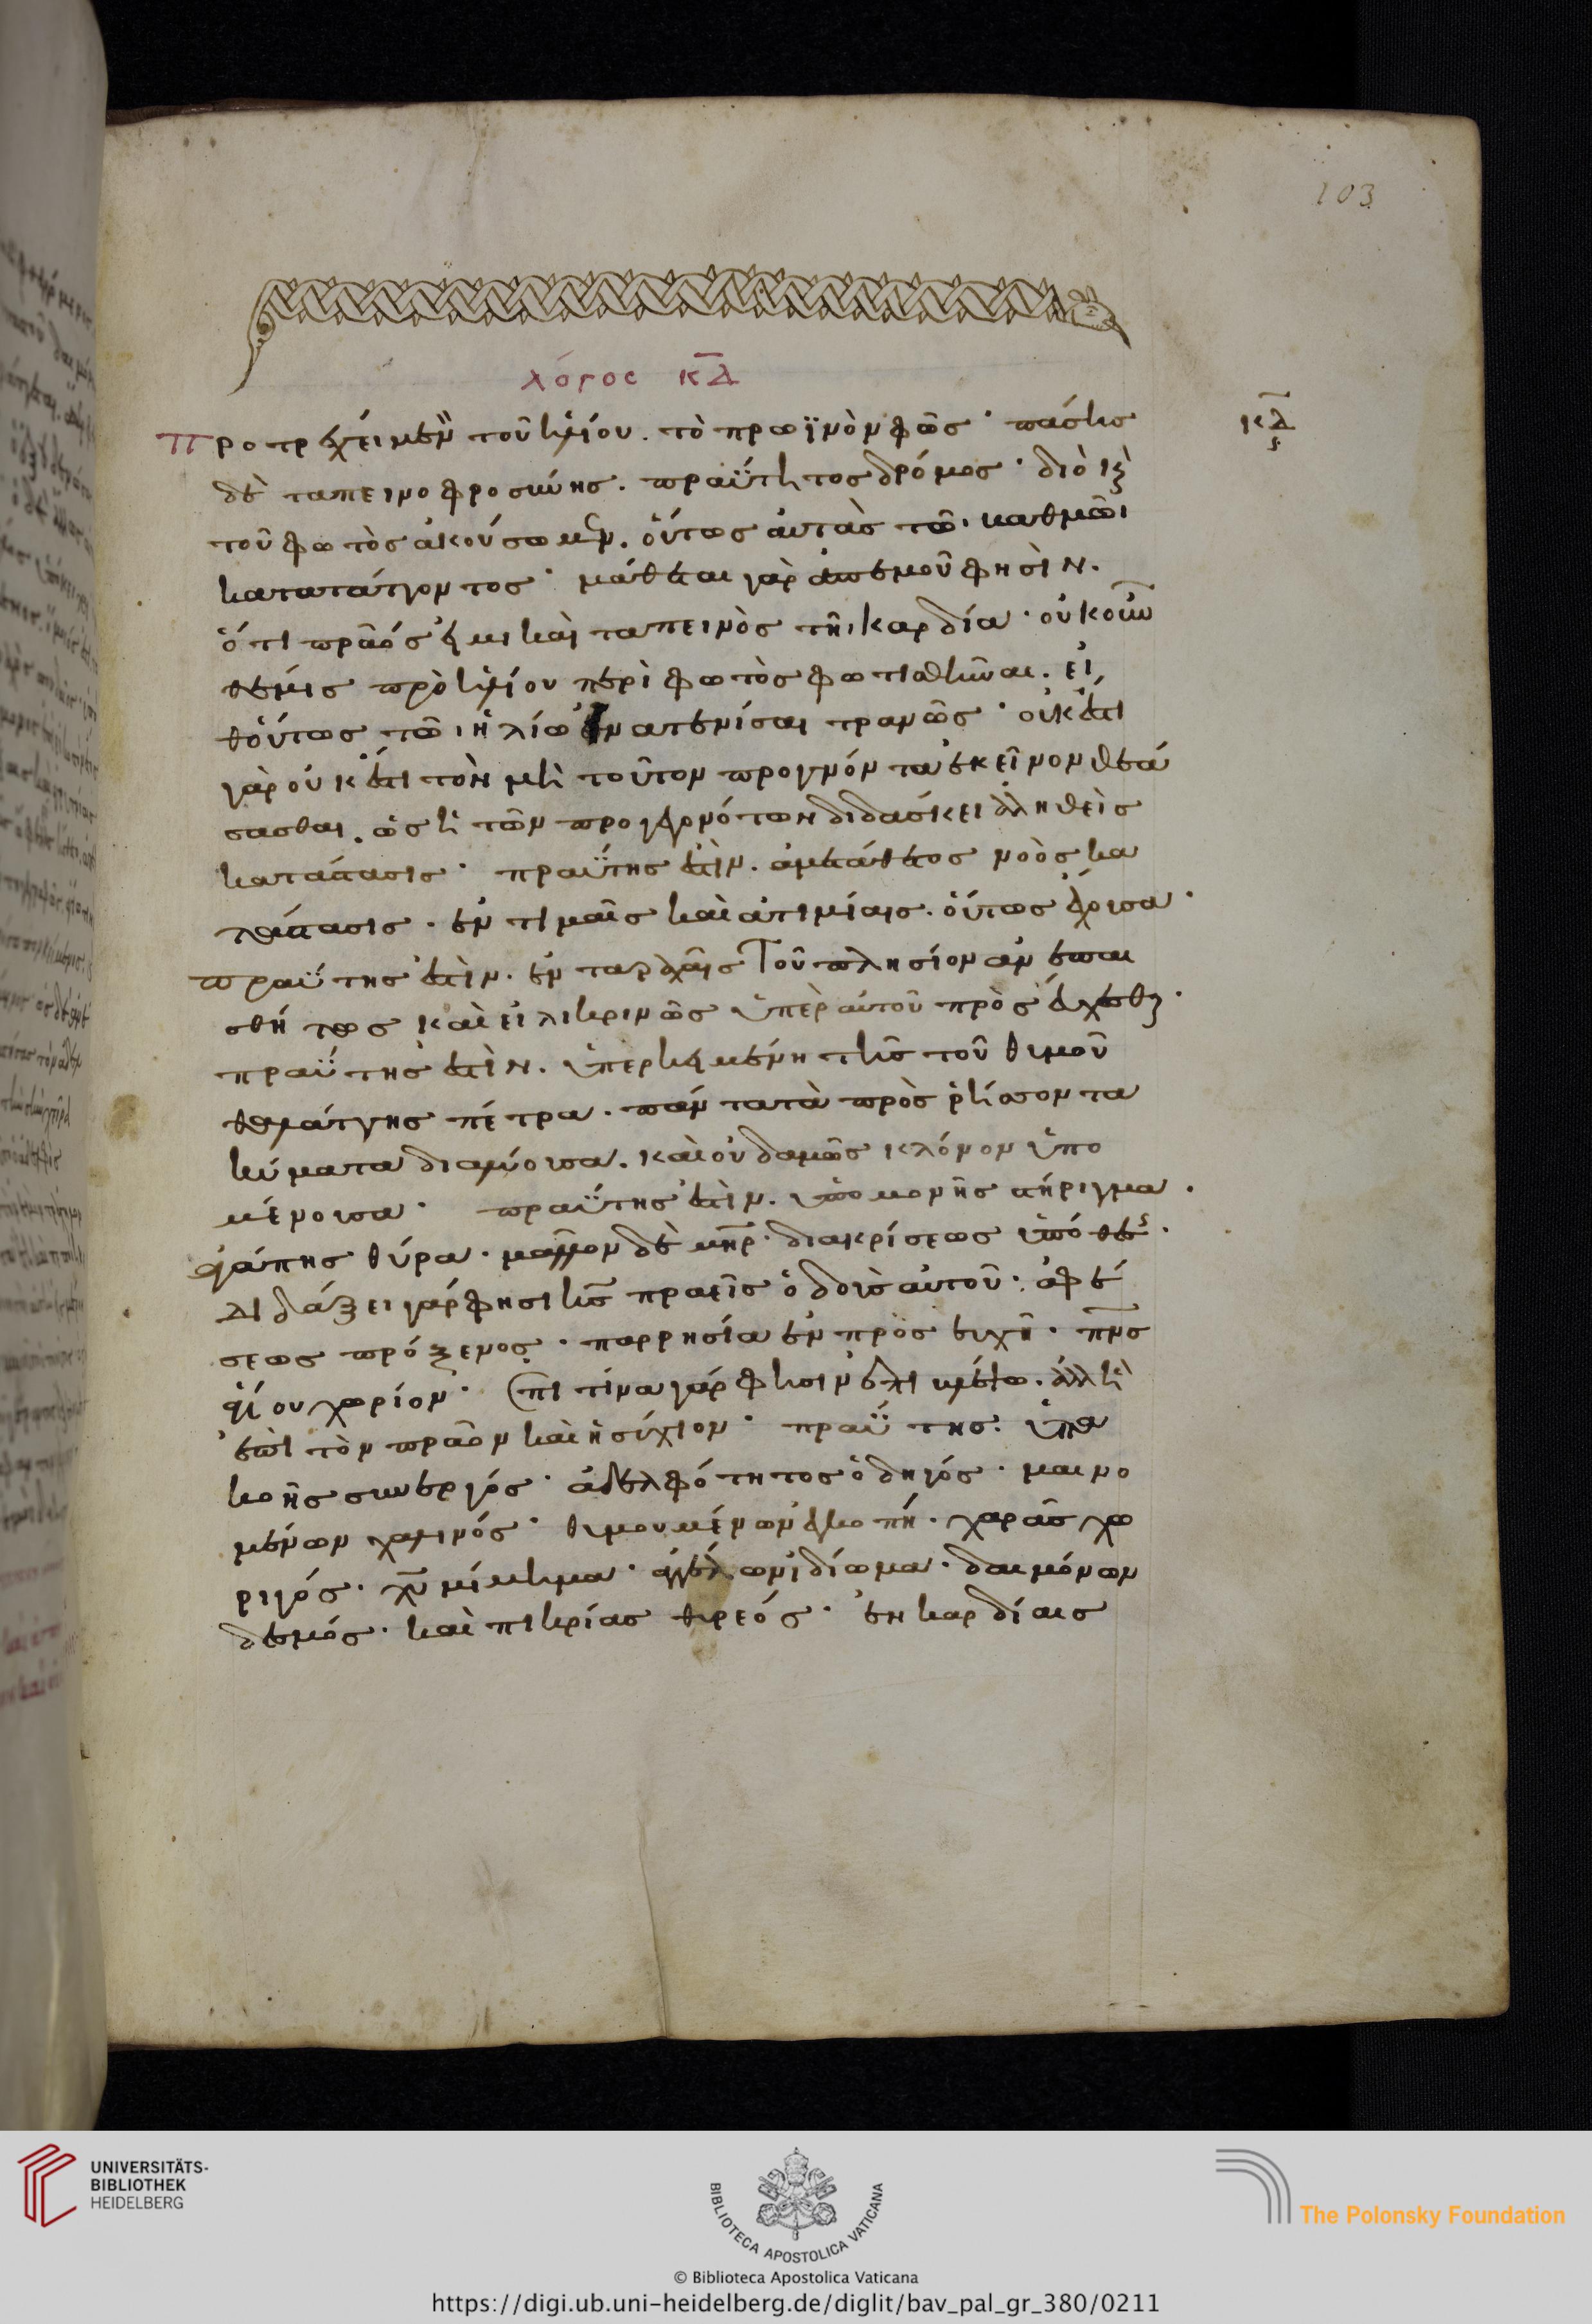 λόγος κδ
Προτρέχει μὲν τοῦ ἡλίου. τὸ πρωϊνὸν φῶς· πάσης
κδ
δὲ ταπεινοφροσύνης. πραΰτητος δρόμος· διὸ ἐκ
τοῦ φωτὸς ἀκούσωμεν. οὕτως αὐτὰς τῶι καθμῶι
κατατάττοντος· μάθετε γὰρ ἀπεμοῦ φησὶν.
ὅτι πρᾶός εἰμι καὶ ταπεινὸς τῆι καρδία· οὐκοῦν
θέμις πρὸ ἡλίου περὶ φωτὸς φωτισθῆναι. εἶ
θούτως τῶι ἡλίω ἐνατενίσαι τρανῶς· οὐκέστι
γὰρ οὐκ ἔστι τὸν μὴ τοῦτον προγνόντα ἐκεῖνον θεά
σασθαι. ὡς ἡ τῶν διδάσκει ἀληθεὶς
κατάστασις· πραΰτης ἐστὶν. ἀμετάθετος νοὸς κα
τάστασις. ἐν τιμαῖς καὶ ἀτιμίαις. οὕτως ἔχουσα·
πραΰτης ἐστὶν. ἐν ταραχαῖς τοῦ πλησίον ἀνεπαι
σθήτως καὶ εἰλικρινῶς ὑπὲρ αὐτοῦ προσεύχεσθαι·
πραΰτης ἐστὶν. ὑπερκειμένη τῆς τοῦ θυμοῦ
θαλάττης πέτρα. πάντα τὰ πρὸς ῥήσσοντα
κύματα διαλύουσα. καὶ οὐδαμῶς κλόνον ὑπο
μένουσα· πραΰτης ἐστὶν. ὑπομονῆς στήριγμα.
ἀγάπης θύρα. μᾶλλον δὲ μηρ· διακρίσεως ὑπόθες·
διδάξει γάρ φησι κς πραεῖς ὁδοὺς αὐτοῦ· ἀφέ
σεως πρόξενος· παρρησία ἐν προσευχῆ· πνς
ἁγίου χωρίον· ἐπὶ τίνα γάρ φησιν ἐπιβλέψω. ἀλλὴ
ἐπὶ τὸν πρᾶον καὶ ἡσύχιον· πραΰτης. ὑπα
κοῆς συνεργός· ἀδελφότητος ὁδηγός· μαινο
μένων χαλινός· θυμουμένων ἐκκοπή. χαρᾶς χω
ρηγός. χυ μίμημα· ἀγγέλων ἰδίωμα. δαιμόνων
δεσμός. καὶ πικρίας θυρεός· ἐν καρδίαις
103
UNIVERSITÄTS-
BIBLIOTHEK
HEIDELBERG
BIBLIOTECA APOSTOLICA VATICANA
The Polonsky Foundation
© Biblioteca Apostolica Vaticana
https://digi.ub.uni-heidelberg.de/diglit/bav_pal_gr_380/0211